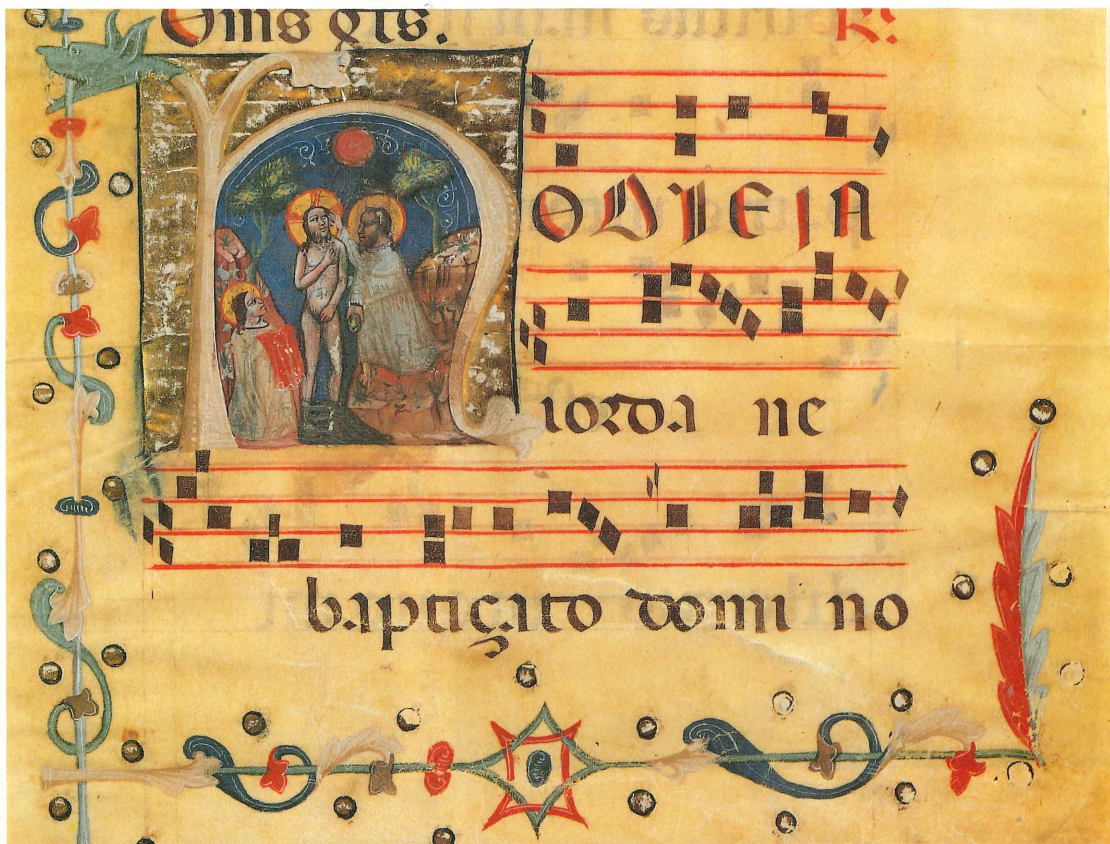 R.
HODIE IN
iorda ne
baptiçato domi no